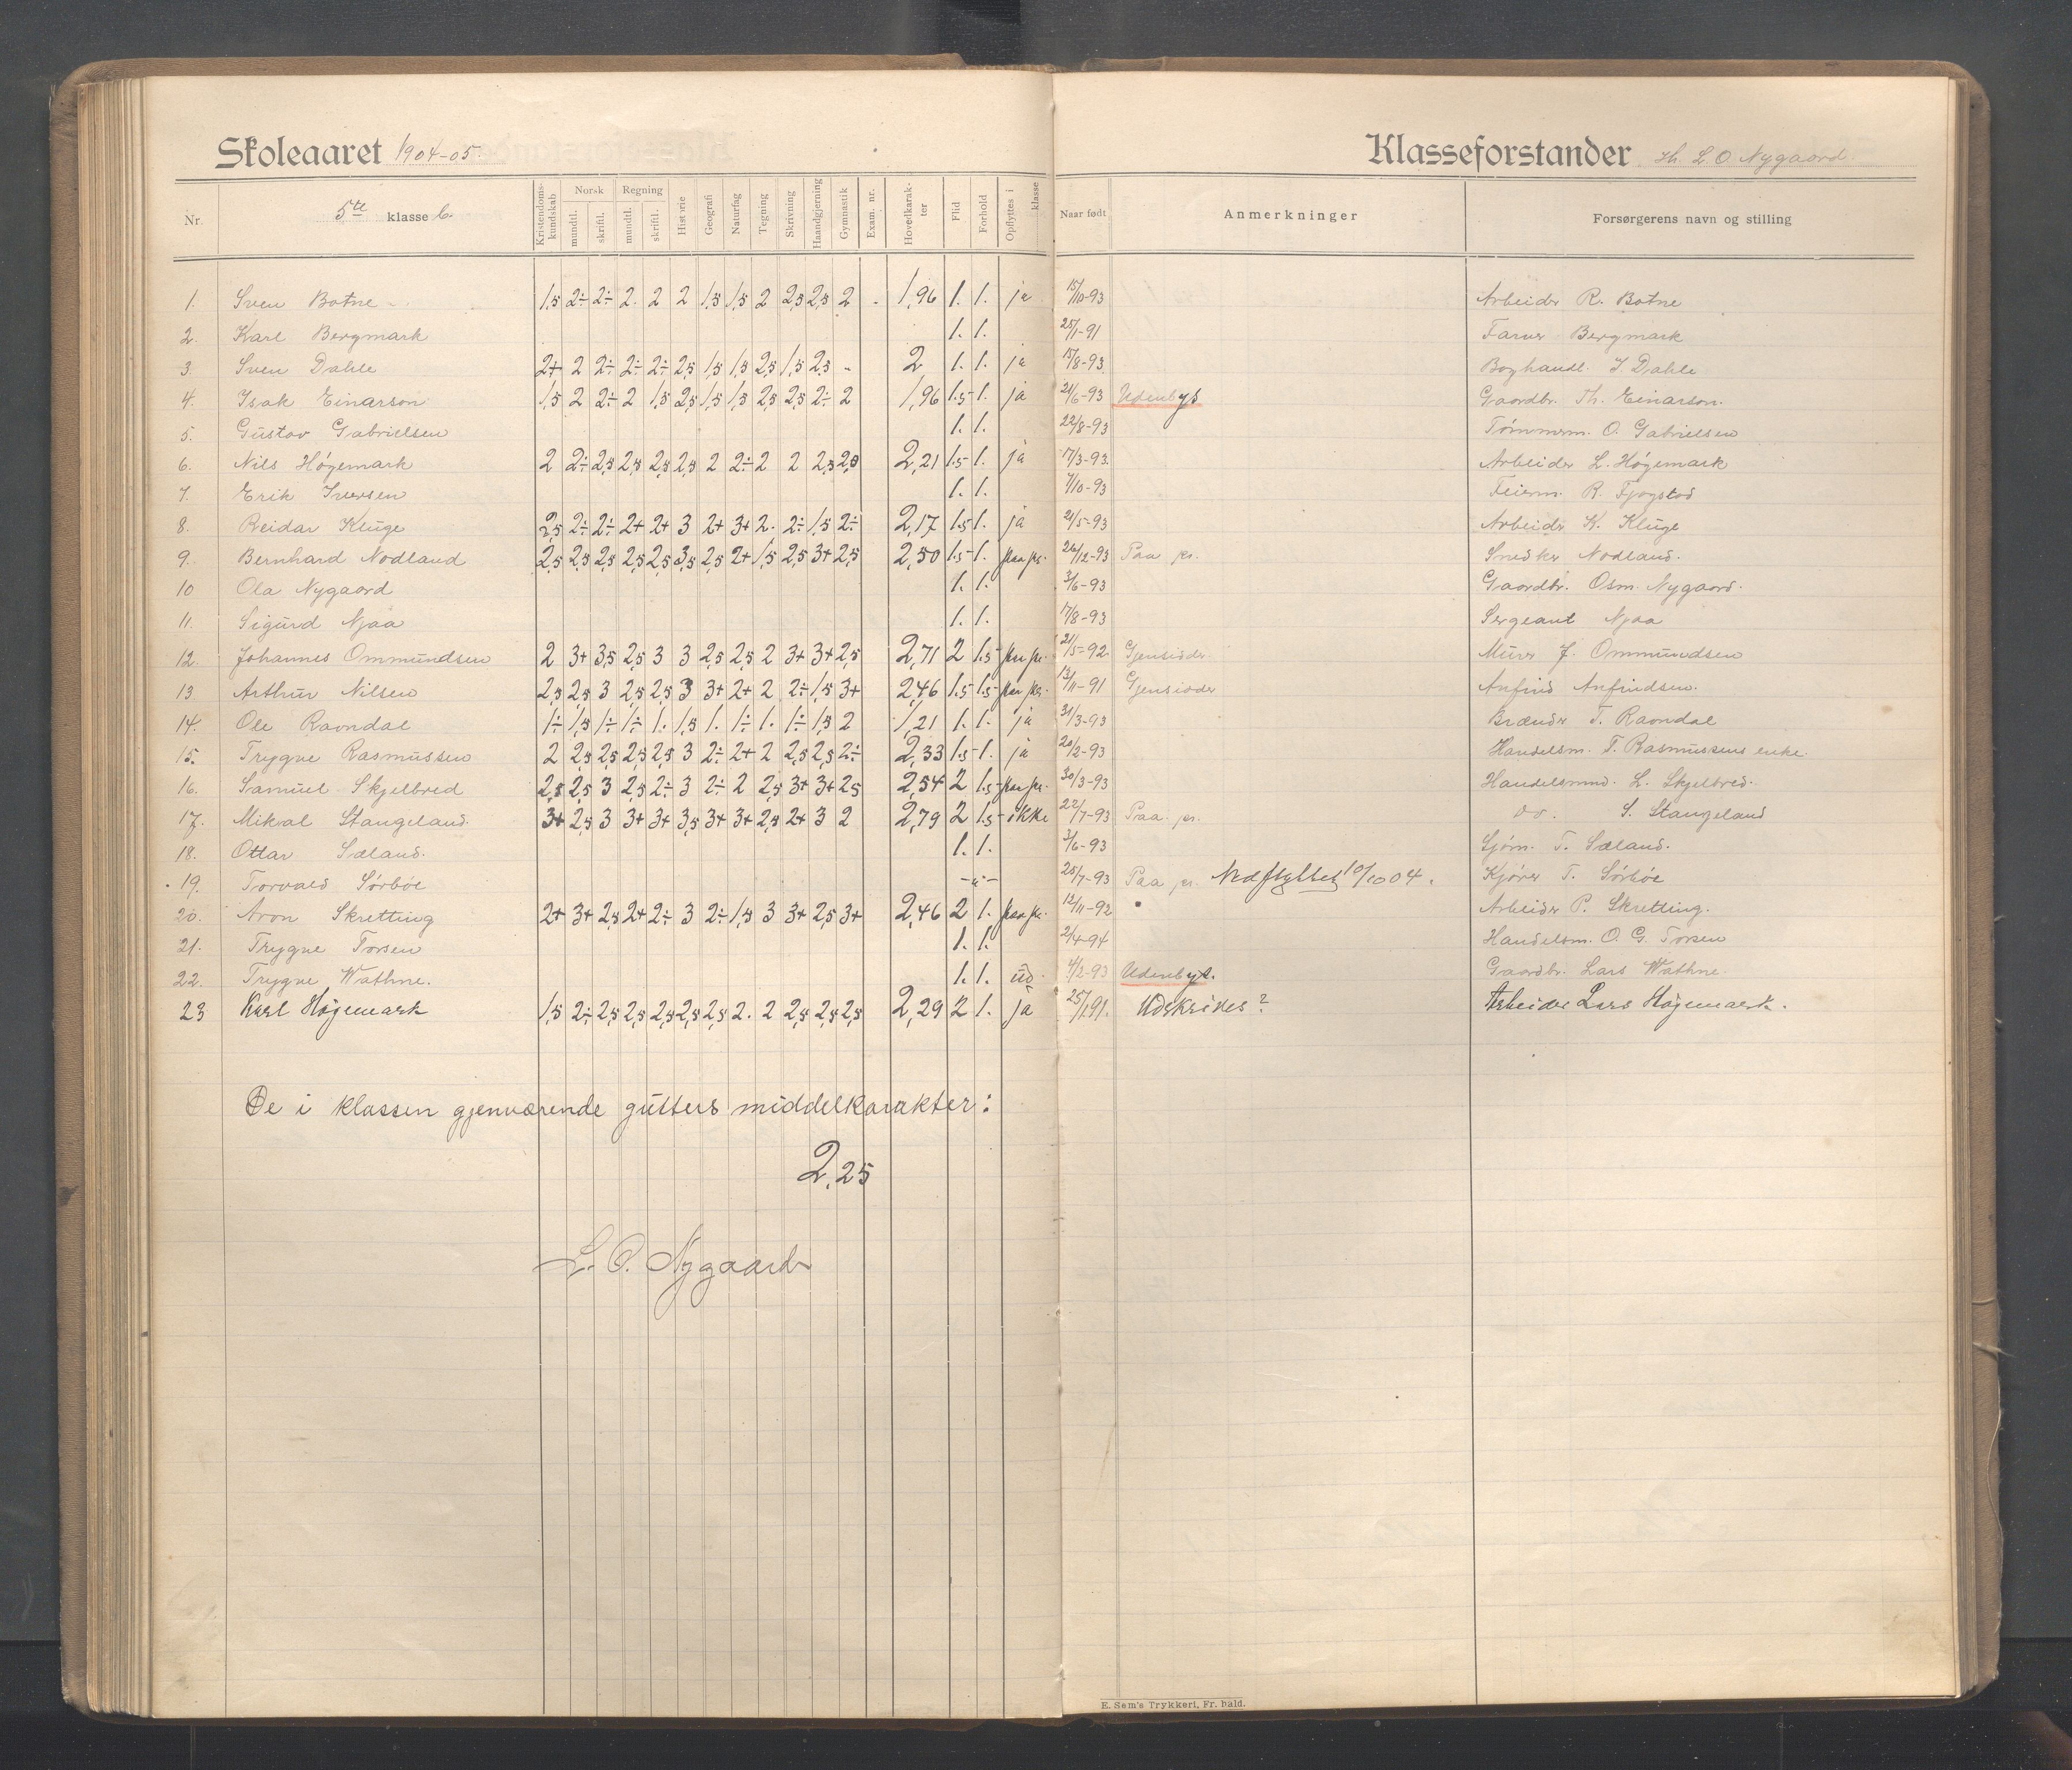 Skoleaaret 1904-05.
Klasseforstander Hr. L. O. Nygaard
Nr. 5te klasse b. Kristendoms-kundskab Norsk mundtl. skriftl. Regning mundtl. skriftl. Historie Geografi Naturfag Tegning Skrivning Haandgjerning Gymnastik Exam. nr. Hovedkarak-ter Flid Forhold Opflyttes i klasse Naar født Anmerkninger Forsørgerens navn og stilling
1. Sven Botne 1,5 2÷ 2÷ 2. 2 2 1,5 1,5 2 2,5 2,5 2 - 1,96 1. 1. ja 15/10-93 Arbeider R. Botne
2. Karl Bergmark 1. 1. 25/1-91 Farver Bergmark
3. Sven Dahle 2+ 2 2÷ 2÷ 2÷ 2,5 1,5 1,5 2,5 1,5 2,5 - 2 1. 1. ja 15/8-93 Boghandl. I. Dahle
4. Isak Einarson 1,5 2 2÷ 2 1,5 2,5 1,5 1,5 2,5 2,5 2÷ 2 1,96 1.5 1. ja 21/6-93 Udenbys Gaardbr. Th. Einarson.
5. Gustav Gabrielsen 1. 1. 22/8-93 Tømmerm. O. Gabrielsen
6. Nils Høgemark 2 2÷ 2,5 2,5 2,5 2,5 2 2÷ 2 2 2,5 2,5 2,21 1.5 1. ja 17/3-93. Arbeider L. Høgemark
7. Erik Iversen 1. 1. 7/10-93 Feierm. R. Fjogstad
8. Reidar Kluge 2,5 2÷ 2÷ 2+ 2+ 3 2+ 3+ 2. 2÷ 1,5 2÷ 2,17 1.5 1. ja 21/5-93 Arbeidr K. Kluge
9. Bernhard Nodland 2,5 2,5 2,5 2,5 2,5 3,5 2,5 2+ 1,5 2,5 3+ 2,5 2,50 1.5 1. paa pr. 26/12-93 Paa pr. Snedker Nodland.
10 Ola Nygaard 1. 1. 3/6-93 Gaardbr. Osm. Nygaard.
11. Sigurd Njaa 1. 1. 17/8-93 Sergeant Njaa
12. Johannes Ommundsen 2 3+ 3,5 2,5 3 3 2,5 2,5 2 3+ 3+ 2,5 2,71 2 1.5 paa pr. 21/5-92 Gjensidder Murer J. Ommundsen
13 Arthur Nilsen 2,5 2,5 3 2,5 2,5 3 3+ 2+ 2 2÷ 1,5 3+ 2,46 1.5 1.5 paa pr. 13/11-91 Gjensidder Anfind Anfindsen.
14. Ole Ravndal 1÷ 1,5 1÷ 1÷ 1. 1,5 1. 1÷ 1. 1÷ 1,5 2 1,21 1. 1. ja 31/3-93 Brænder T. Ravndal
15. Trygve Rasmussen 2 2,5 2,5 2,5 2,5 3 2÷ 2+ 2 2,5 2,5 2÷ 2,33 1.5 1. ja 20/2-93 Handelsm. T. Rasmussens enke.
16. Samuel Skjelbred 2,5 2,5 3 2,5 2÷ 3 2÷ 2 2,5 3+ 3+ 2,5 2,54 2 1.5 paa pr. 30/3-93 Handelsmnd. L. Skjelbred.
17. Mikal Stangeland. 3+ 2,5 3 3+ 3+ 3,5 3+ 3+ 2,5 2+ 3 2 2,79 2 1.5 ikke 22/7-93 Paa pr. do. S. Stangeland
18. Ottar Sæland. 1. 1. 3/6-93 Gjørn. T. Sæland.
19. Torvald Sørbøe -"- 25/7-93 Paa pr. Nedflyttet 10/10 04. Kjører T. Sørbøe
20. Aron Skretting 2+ 3+ 2,5 2+ 2÷ 3 2÷ 1,5 3 3+ 2,5 3+ 2,46 2 1. paa pr. 12/11-92 Arbeider P. Skretting.
21. Trygve Torsen 1. 1. 2/4-94 Handelsm. O. G. Torsen
22. Trygve Wathne. 1. 1. ud. 4/2-93 Udenbys. Gaardbr. Lars Wathne
23 Karl Høgemark 1,5 2÷ 2,5 2,5 2,5 2,5 2,5 2. 2 2,5 2,5 2,5 2,29 2 1. ja 25/1 91. Udskrives? Arbeider Lars Høgemark.
De i klassen gjenværende gutters middelkarakter:
2,25
L. O. Nygaard
E. Sem's Trykkeri, Fr. hald.